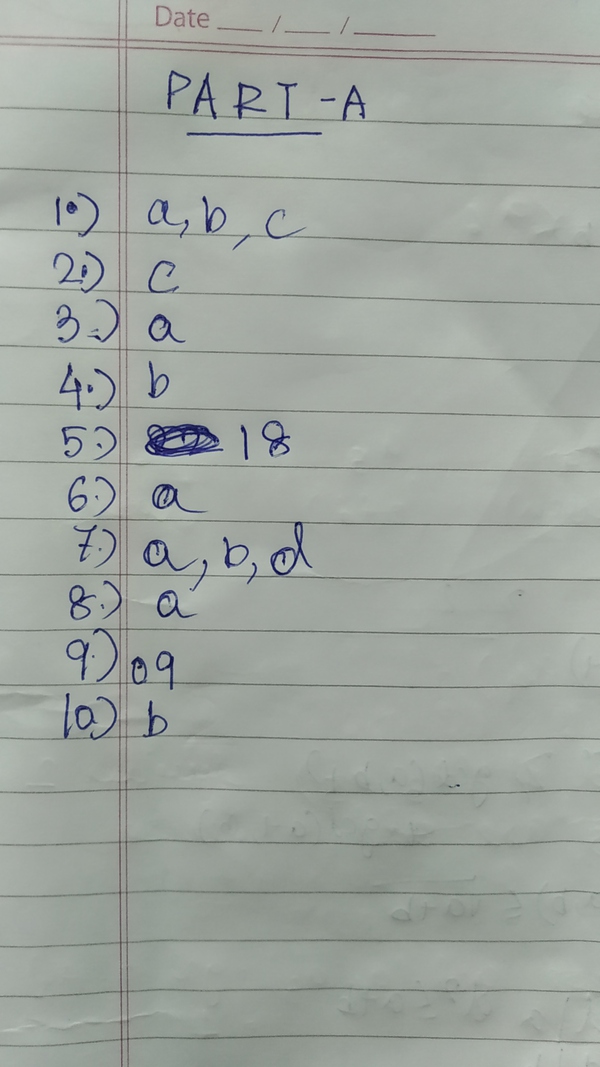 Date ___/___/______
PART-A
1.) a, b, c
2.) c
3.) a
4.) b
5.) 18
6.) a
7.) a, b, d
8.) a
9.) 09
10.) b